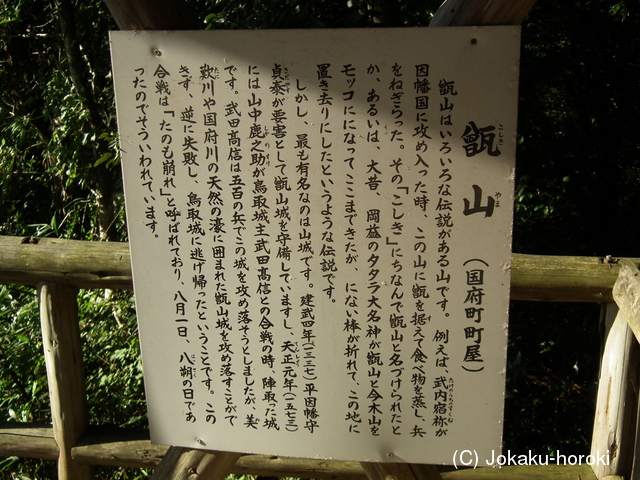 甑山
こしき
やま
(国府町町屋)
甑山はいろいろな伝説がある山です。例えば、武内宿祢が
たけのうちのすくね
因幡国に攻め入った時、この山に甑を据えて食べ物を蒸し、兵
をねぎらった。その「こしき」にちなんで甑山と名づけられたと
か、あるいは、大昔、岡益のタタラ大名神が甑山と今木山を
モッコにになってここまできたが、にない棒が折れて、この地に
置き去りにしたというような伝説です。
しかし、最も有名なのは山城です。建武四年(一三三七)平因幡守
貞泰が要害として甑山城を守備していますし、天正元年(一五七三)
さだやす
てんしょう
には山中鹿之助が鳥取城主武田高信との合戦の時、陣取った城
しかのすけ
です。武田高信は五百の兵でこの城を攻め落そうとしましたが、美
歎川や国府川の天然の濠に囲まれた甑山城を攻め落すことがで
たに
きず、逆に失敗し、鳥取城に逃げ帰ったということです。この
合戦は「たのも崩れ」と呼ばれており、八月一日、八朔の日であ
ったのでそういわれています。
(C) Jokaku-horoki